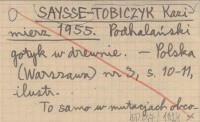 SAYSSE-TOBICZYK Kazi
mierz 1955. Podhalański
gotyk w drewnie. – Polska
(Warszawa) nr 3, s. 10-11,
ilustr.
To samo w mutacjach obco-